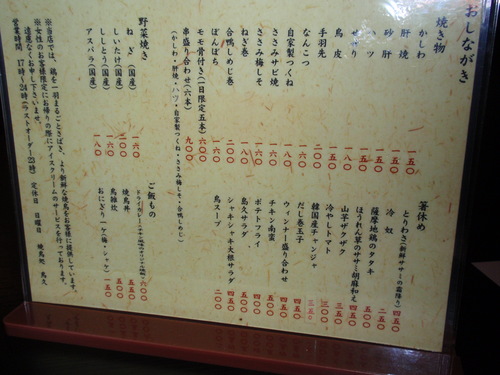 おしながき
焼き物
かしわ 一五〇
肝焼 一五〇
砂肝 一五〇
ハツ 一五〇
せせり 一八〇
鳥皮 一五〇
手羽先 二〇〇
なんこつ 一六〇
自家製つくね 一八〇
ささみサビ焼 一六〇
ささみ梅しそ 一六〇
ねぎ巻 一八〇
合鴨しめじ巻 二〇〇
ぼんぼち 一六〇
モモ骨付き(一日限定五本) 六〇〇
串盛り合わせ(六本) 九〇〇
(かしわ・肝焼・ハツ・自家製つくね・ささみ梅しそ・合鴨しめじ)
野菜焼き
ねぎ(国産) 一六〇
しいたけ(国産) 二〇〇
ししとう(国産) 一六〇
アスパラ(国産) 一八〇
箸休め
とりわさ(新鮮ササミの霜降り) 四五〇
冷奴 二五〇
薩摩地鶏のタタキ 五〇〇
ほうれん草のササミ胡麻和え 四五〇
山芋ザクザク 三五〇
冷やしトマト 三〇〇
韓国産チャンジャ 三五〇
だし巻玉子 四五〇
ウィンナー盛り合わせ 四五〇
チキン南蛮 五〇〇
ポテトフライ 四〇〇
鳥久サラダ 五〇〇
シャキシャキ大根サラダ 四五〇
鳥スープ 二〇〇
ご飯もの
六〇〇
焼鳥丼 五五〇
鳥雑炊 五〇〇
おにぎり(一ケ)(梅・シャケ) 一五〇
※当店では、鶏を一羽まるごとさばき、より新鮮な焼鳥をお客様に提供しています。
※女性のお客様限定にお帰りの際にアイスクリームのサービスを行っております。
遠慮なくお申し下さいませ。
営業時間 17時〜24時(ラストオーダー23時) 定休日 日曜日 焼鳥処 鳥久